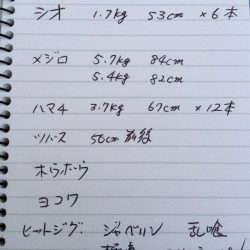 シオ 1.7kg 53cm ×6本
メジロ 5.7kg 84cm
5.4kg 82cm
ハマチ 3.7kg 67cm ×12本
ツバス 50cm前後
ヨコワ
ヒットジグ ジャベリン 乱喰